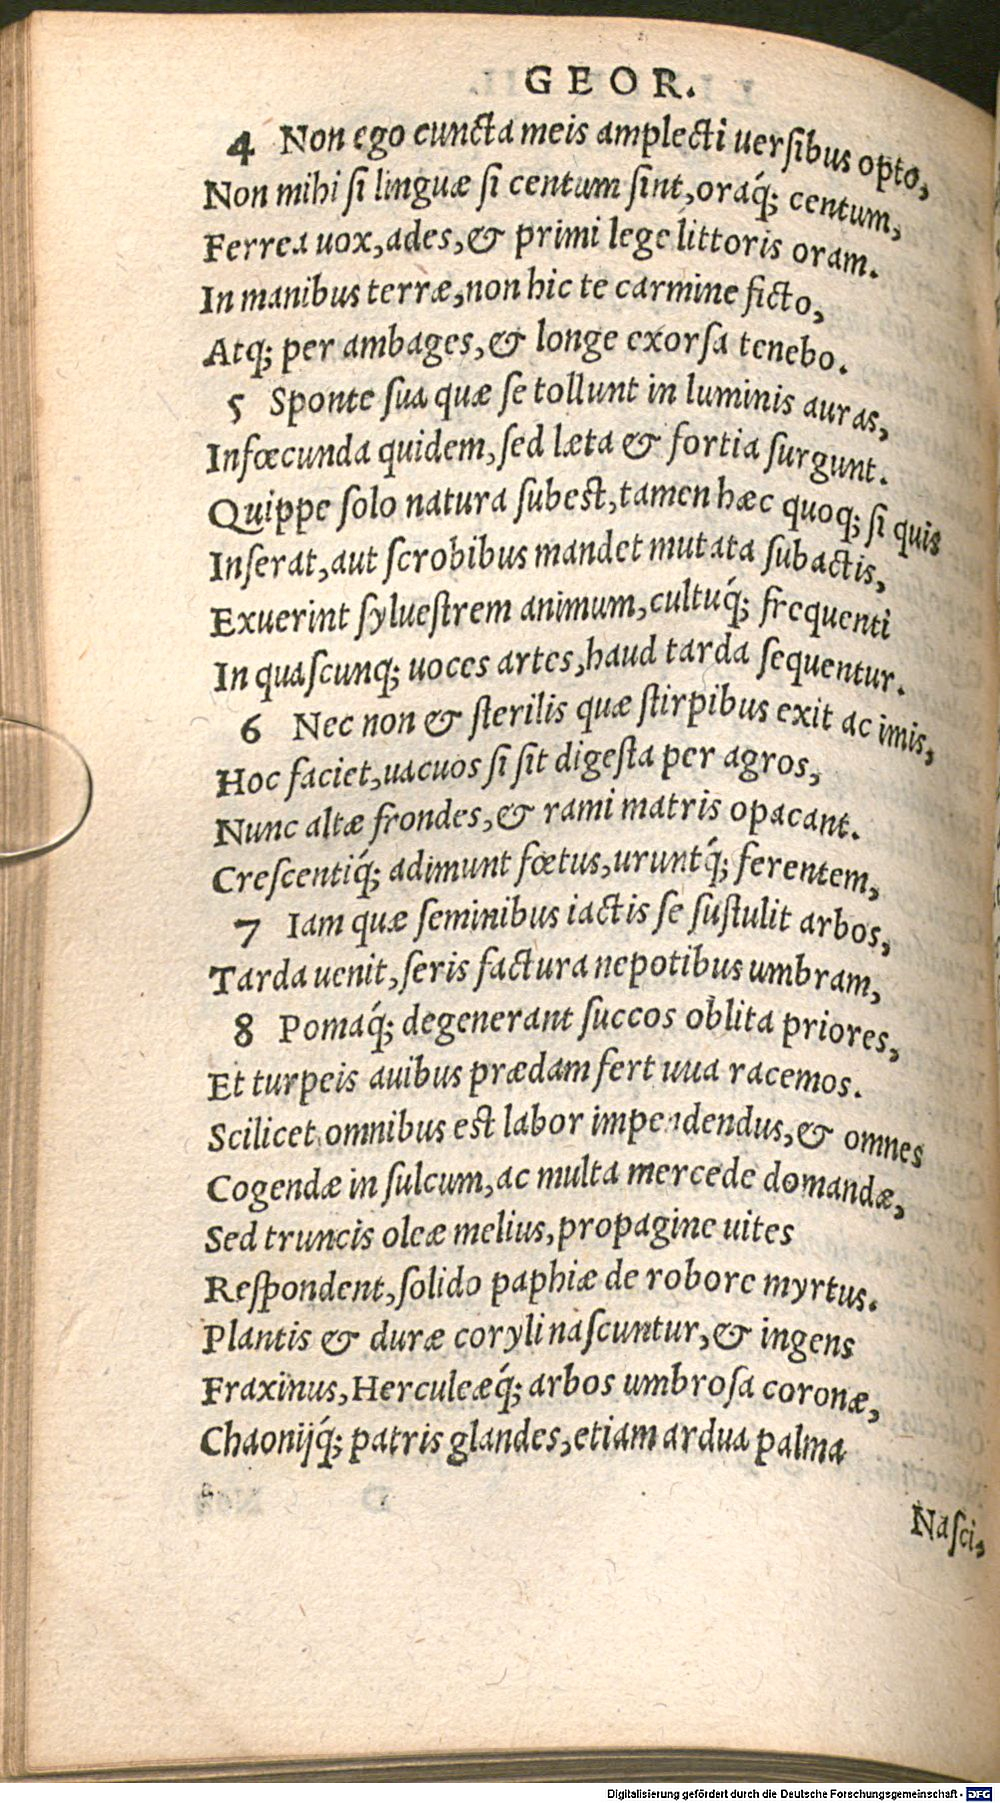 GEOR.
4 Non ego cuncta meis amplecti uerſibus opto,
Non mihi ſi linguæ ſi centum ſint, oraq́; centum,
Ferrea uox, ades, & primi lege littoris oram.
In manibus terræ, non hic te carmine ficto,
Atq; per ambages, & longe exorſa tenebo.
5 Sponte ſua quæ ſe tollunt in luminis auras,
Infœcunda quidem, ſed læta & fortia ſurgunt.
Quippe ſolo natura ſubeſt, tamen hæc quoq; ſi quis
Inſerat, aut ſcrobibus mandet mutata ſubactis,
Exuerint ſylueſtrem animum, cultuq́; frequenti
In quaſcunq; uoces artes, haud tarda ſequentur.
6 Nec non & ſterilis quæ ſtirpibus exit ac imis,
Hoc faciet, uacuos ſi ſit digeſta per agros,
Nunc altæ frondes, & rami matris opacant.
Creſcentiq́; adimunt fœtus, uruntq́; ferentem,
7 Iam quæ ſeminibus iactis ſe ſuſtulit arbos,
Tarda uenit, ſeris factura nepotibus umbram,
8 Pomaq́; degenerant ſuccos oblita priores,
Et turpeis auibus prædam fert uua racemos.
Scilicet omnibus eſt labor impendendus, & omnes
Cogendæ in ſulcum, ac multa mercede domandæ,
Sed truncis oleæ melius, propagine uites
Reſpondent, ſolido paphiæ de robore myrtus.
Plantis & duræ coryli naſcuntur, & ingens
Fraxinus, Herculeæq́; arbos umbroſa coronæ,
Chaonijq́; patris glandes, etiam ardua palma
Naſci,
Digitalisierung gefördert durch die Deutsche Forschungsgemeinschaft - DFG